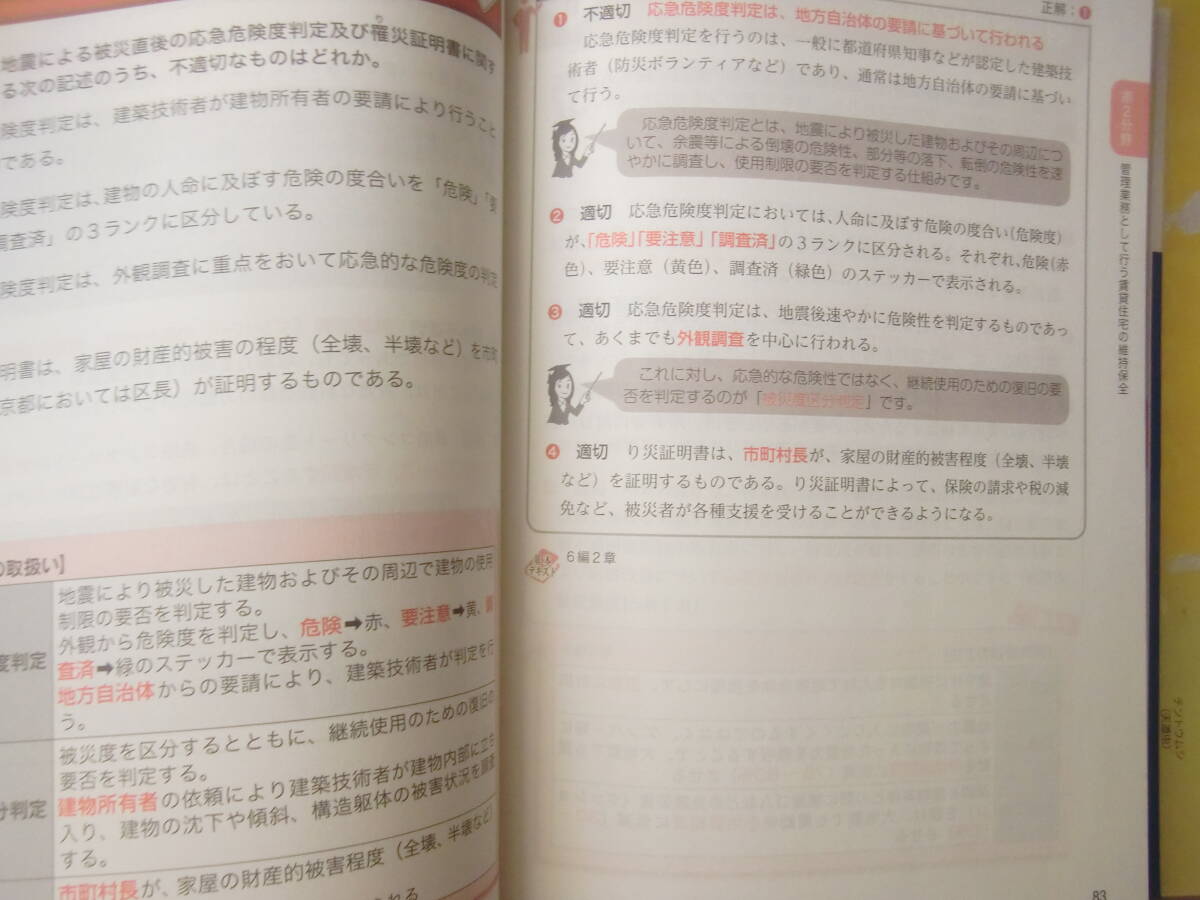 地震による被災直後の応急危険度判定及び罹災証明書に関す
る次の記述のうち、不適切なものはどれか。
険度判定は、建築技術者が建物所有者の要請により行うこと
である。
険度判定は、建物の人命に及ぼす危険の度合いを「危険」「要
調査済」の3ランクに区分している。
険度判定は、外観調査に重点をおいて応急的な危険度の判定
明書は、家屋の財産的被害の程度（全壊、半壊など）を市町
京都においては区長）が証明するものである。
の取扱い】
度判定
地震により被災した建物およびその周辺で建物の使用
制限の要否を判定する。
外観から危険度を判定し、危険➡赤、要注意➡黄、調
査済➡緑のステッカーで表示する。
地方自治体からの要請により、建築技術者が判定を行
う。
分判定
被災度を区分するとともに、継続使用のための復旧の
要否を判定する。
建物所有者の依頼により建築技術者が建物内部に立ち
入り、建物の沈下や傾斜、構造躯体の被害状況を調査
する。
市町村長が、家屋の財産的被害程度（全壊、半壊など）
正解：❶
❶ 不適切 応急危険度判定は、地方自治体の要請に基づいて行われる
応急危険度判定を行うのは、一般に都道府県知事などが認定した建築技
術者（防災ボランティアなど）であり、通常は地方自治体の要請に基づい
て行う。
応急危険度判定とは、地震により被災した建物およびその周辺につ
いて、余震等による倒壊の危険性、部分等の落下、転倒の危険性を速
やかに調査し、使用制限の要否を判定する仕組みです。
❷ 適切 応急危険度判定においては、人命に及ぼす危険の度合い（危険度）
が、「危険」「要注意」「調査済」の3ランクに区分される。それぞれ、危険（赤
色）、要注意（黄色）、調査済（緑色）のステッカーで表示される。
❸ 適切 応急危険度判定は、地震後速やかに危険性を判定するものであっ
て、あくまでも外観調査を中心に行われる。
これに対し、応急的な危険性ではなく、継続使用のための復旧の要
否を判定するのが「被災度区分判定」です。
❹ 適切 り災証明書は、市町村長が、家屋の財産的被害程度（全壊、半壊
など）を証明するものである。り災証明書によって、保険の請求や税の減
免など、被災者が各種支援を受けることができるようになる。
テキスト
6編2章
第2分野
管理業務として行う賃貸住宅の維持保全
83
テントウムシ